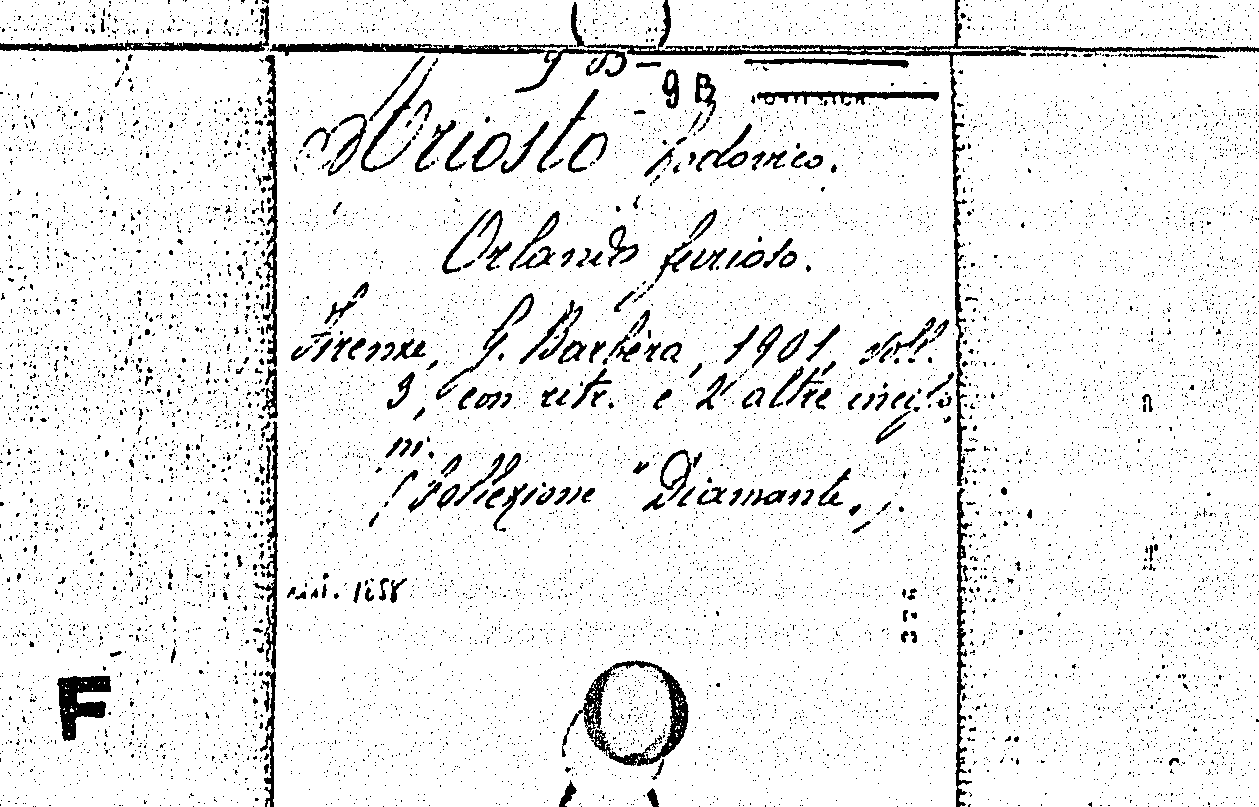 9 B
Ariosto Lodovico.
Orlando furioso.
Firenze, G. Barbèra, 1901, voll.
3, con ritr. e 2 altre incisio
ni.
(Collezione "Diamante„).
1658
F